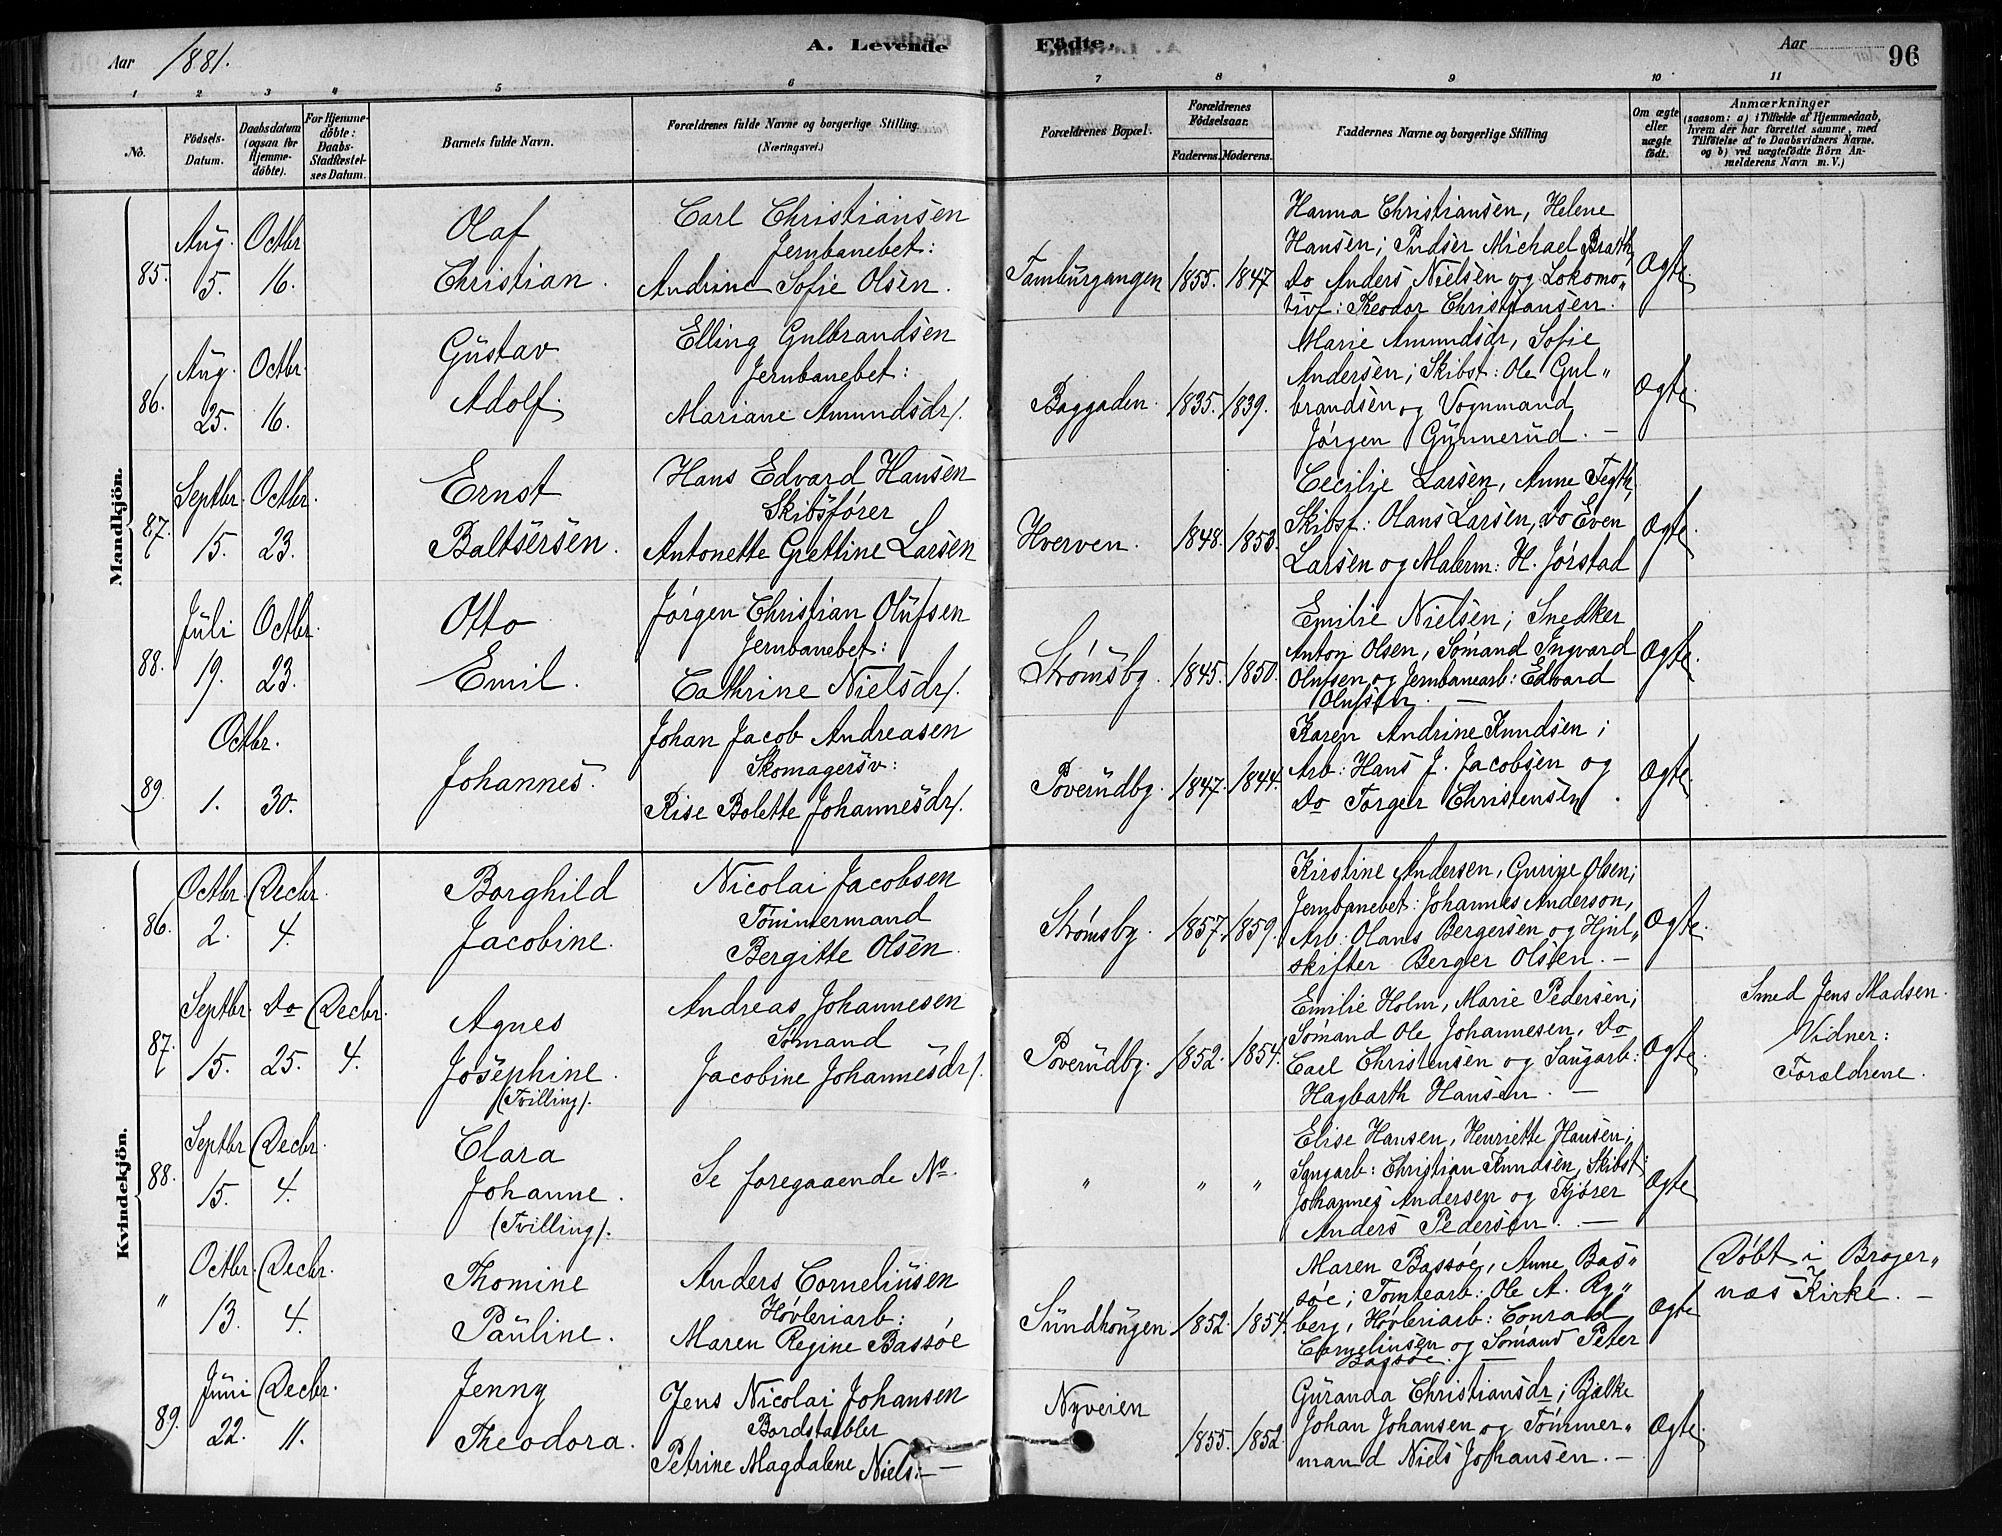 Aar 1881.
A. Levende
Födte.
Aar
96
1 2 3 4 5 6 7 8 9 10 11
No.
Födsels-Datum.
Daabsdatum (ogsaa for Hjemme-döbte).
For Hjemme-döbte: Daabs-Stadfæstel-ses Datum.
Barnets fulde Navn.
Forældrenes fulde Navne og borgerlige Stilling (Næringsvei.)
Forældrenes Bopæl.
Forældrenes Födselsaar.
Faderens. Moderens.
Faddernes Navne og borgerlige Stilling
Om ægte eller uægte födt.
Anmærkninger
(saasom: a) i Tilfælde af Hjemmedaab,
hvem der har forrettet samme, med
Tilföielse af to Daabsvidners Navne.
og b) ved uægtefödte Börn An-
melderens Navn m. V.)
Mandkjön.
85. Aug. 5. Octbr. 16.
Olaf
Christian.
Carl Christiansen
Jernbanebet:
Andrine Sofie Olsen.
Tamburgangen 1855. 1847
Hanna Christiansen, Helene
Hansen; Pudser Michael Brath,
Do Anders Nielsen og Lokomo„
tivf: Theodor Christiansen.
Ægte.
86. Aug. 25. Octbr. 16.
Gustav
Adolf.
Elling Gulbrandsen
Jernbanebet:
Mariane Amundsdr/.
Baggaden. 1835. 1839.
Marie Amundsdr, Sofie
Andersen; Skibst: Ole Gul„
brandsen og Vognmand
Jørgen Gunnerud. —
Ægte.
87. Septbr. 15. Octbr. 23.
Ernst
Baltsersen.
Hans Edvard Hansen
Skibsfører
Antonette Grettine Larsen
Hverven. 1848. 1853.
Cecilie Larsen, Anne Tegth,
Skibsf: Olans Larsen, Do Even
Larsen og Malerm: H. Jørstad
Ægte.
88. Juli 19. Octbr. 23.
Otto
Emil.
Jørgen Christian Olufsen
Jernbanebet:
Cathrine Nielsdr/.
Strømsby. 1845. 1850.
Emilie Nielsen; Snedker
Anton Olsen, Sømand Ingvard
Olufsen og Jernbanearb: Edvard
Olufsen. —
Ægte.
89. Octbr. 1. 30.
Johannes.
Johan Jacob Andreasen
Skomagersv:
Rise Bolette Johannesdr/.
Poverudby. 1847. 1844.
Karen Andrine Knudsen;
Arb: Hans J. Jacobsen og
Do Torger Christensen.
Ægte.
Kvindekjön.
86. Octbr. 2. Decbr. 4.
Borghild
Jacobine.
Nicolai Jacobsen
Tømmermand
Bergitte Olsen.
Strømsby. 1857. 1859.
Kirstine Andersen, Gurine Olsen;
Jernbanebet: Johannes Anderson,
Arb: Olans Bergersen og Hjul„
skifter Berger Olsen. —
Ægte.
87. Septbr. 15. Do 25. Decbr. 4.
Agnes
Josephine.
(Tvilling).
Andreas Johannesen
Sømand
Jacobine Johannesdr/.
Poverudby. 1852. 1854.
Emilie Holm, Marie Pedersen;
Sømand Ole Johannesen, Do
Carl Christensen og Saugarb:
Hagbarth Hansen. —
Ægte.
Smed Jens Madsen.
Vidner:
Forældrene.
88. Septbr 15. Decbr. 4.
Clara
Johanne.
(Tvilling).
Se foregaaende No.
„ „ „
Elise Hansen, Henriette Hansen;
Saugarb: Christian Knudsen, Skibst:
Johannes Andersen og Kjører
Anders Pedersen. —
Ægte
„ Octbr. 13. Decbr. 4.
Thomine
Pauline.
Anders Corneliusen
Høvleriarb:
Maren Regine Bassøe
Sundhougen 1852. 1854.
Maren Bassøe, Anne Bas„
søe; Tomtearb: Ole A. Ry„
berg, Høvleriarb: Conrad
Corneliusen og Sømand Peter
Bassøe. —
Ægte
Døbt i Brager„
næs Kirke. —
89. Juni 22. Decbr. 11.
Jenny
Theodora.
Jens Nicolai Johansen
Bordstabler
Petrine Magdalene Niels: —
Nyveien 1855. 1852.
Guranda Christiansdr; Bjelke
Johan Johansen og Tømmer„
mand Niels Johansen. —
Ægte.